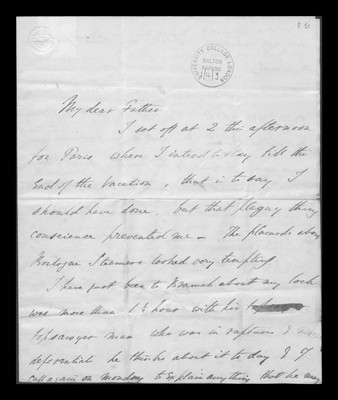 UNIVERSITY COLLEGE LONDON
GALTON
PAPERS
My dear Father
I set off at 2 this afternoon
for Paris where I intend to stay till the
End of the Vacation, that is to say I
should have done. but that plaguy thing
conscience prevented me – The placards about
Boulogne Steamers looked very tempting.
I have just been to Bramah about my lock
was more than 1½ hour with his
topsawyer man who was in raptures &
deferential he thinks about it to day & I
call again on Monday to Explain anything that he may